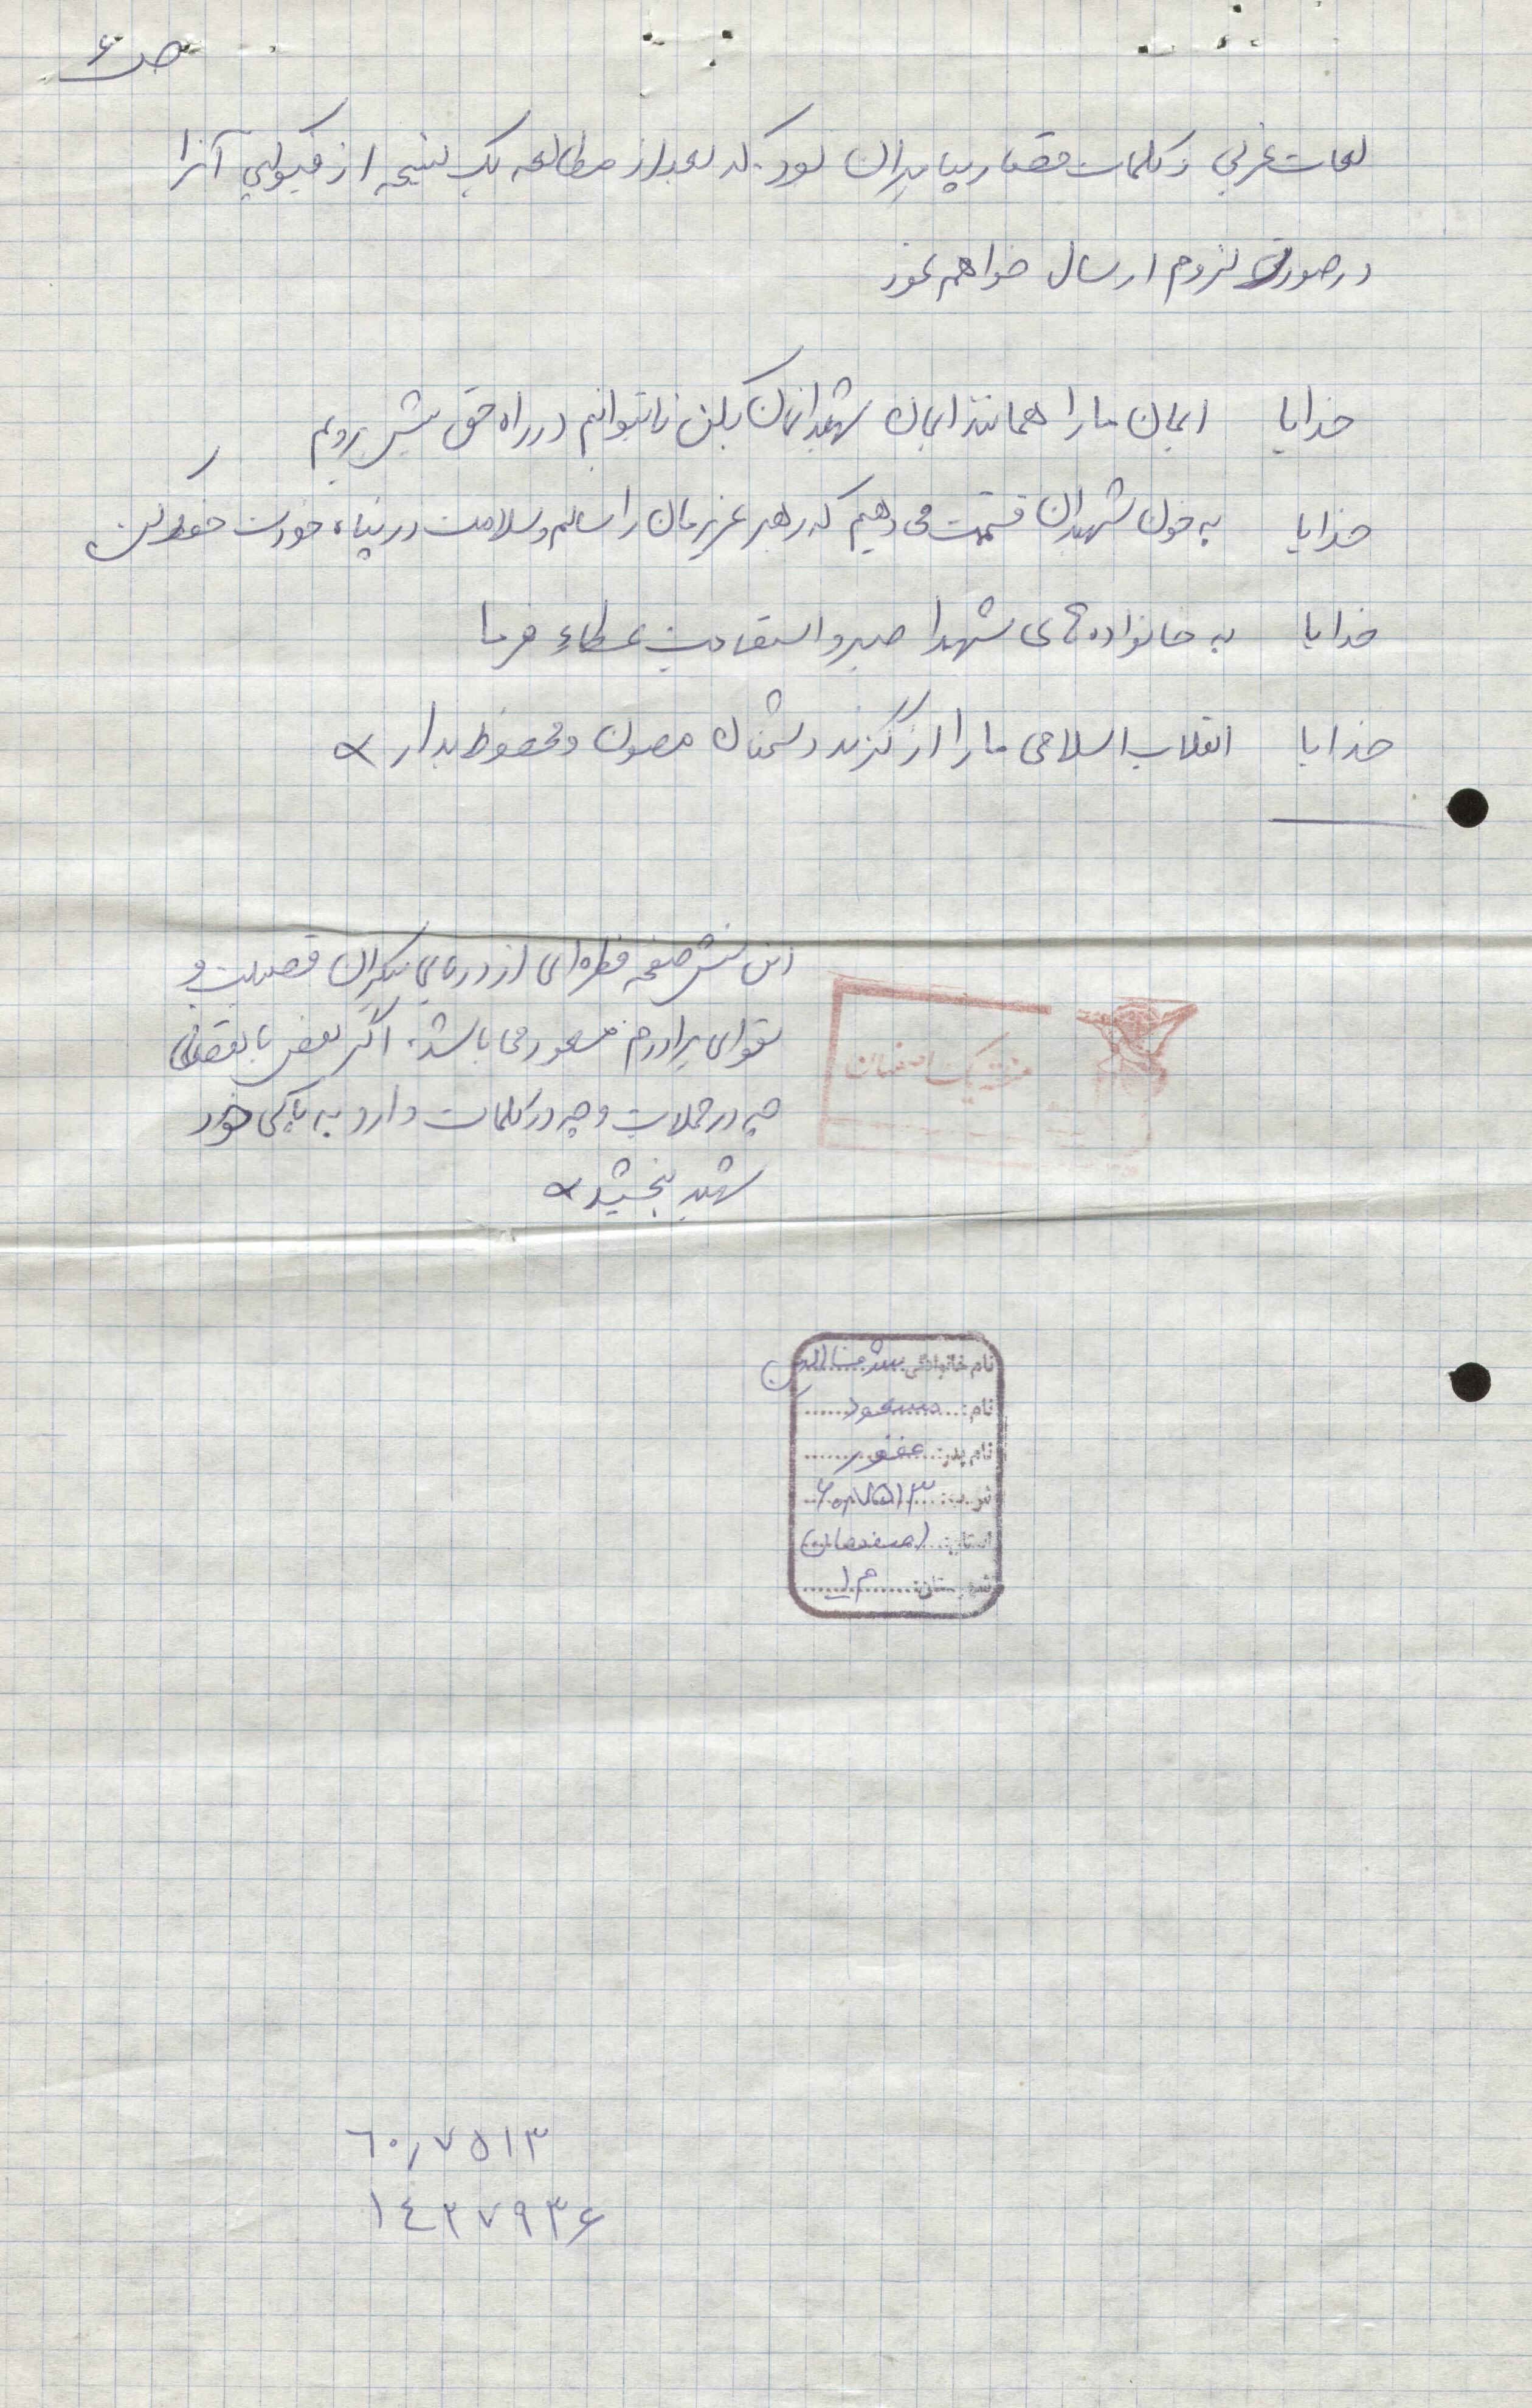 ص ۶
لغات عربی و کلمات قصار پیامبران بود که بعد از مطالعه یک نسخه از فتوکپی آنرا
در صورت لزوم ارسال خواهم نمود
خدایا ایمان ما را همانند ایمان شهیدانمان بکن تا بتوانیم در راه حق پیش برویم
خدایا به خون شهیدان قسمت می دهیم که رهبر عزیزمان را سالم و سلامت در پناه خودت حفظ کن
خدایا به خانواده های شهدا صبر و استقامت عطاء فرما
خدایا انقلاب اسلامی ما را از گزند دشمنان مصون و محفوظ بدار
این شش صفحه قطره ای از دریای بیکران فضیلت و
تقوای برادرم مسعود می باشد. اگر نقص یا نقصانی
چه در جملات و چه در کلمات دارد به پاکی خود
شهید ببخشید
منطقه یک اصفهان
نام خانوادگی: شمس الدین
نام: مسعود
نام پدر: غفور
۶۰۸۷۵۱۳
استان: اصفهان
شهرستان: م ۱
۶۰٫۷۵۱۳
۱۴۳۷۹۳۶